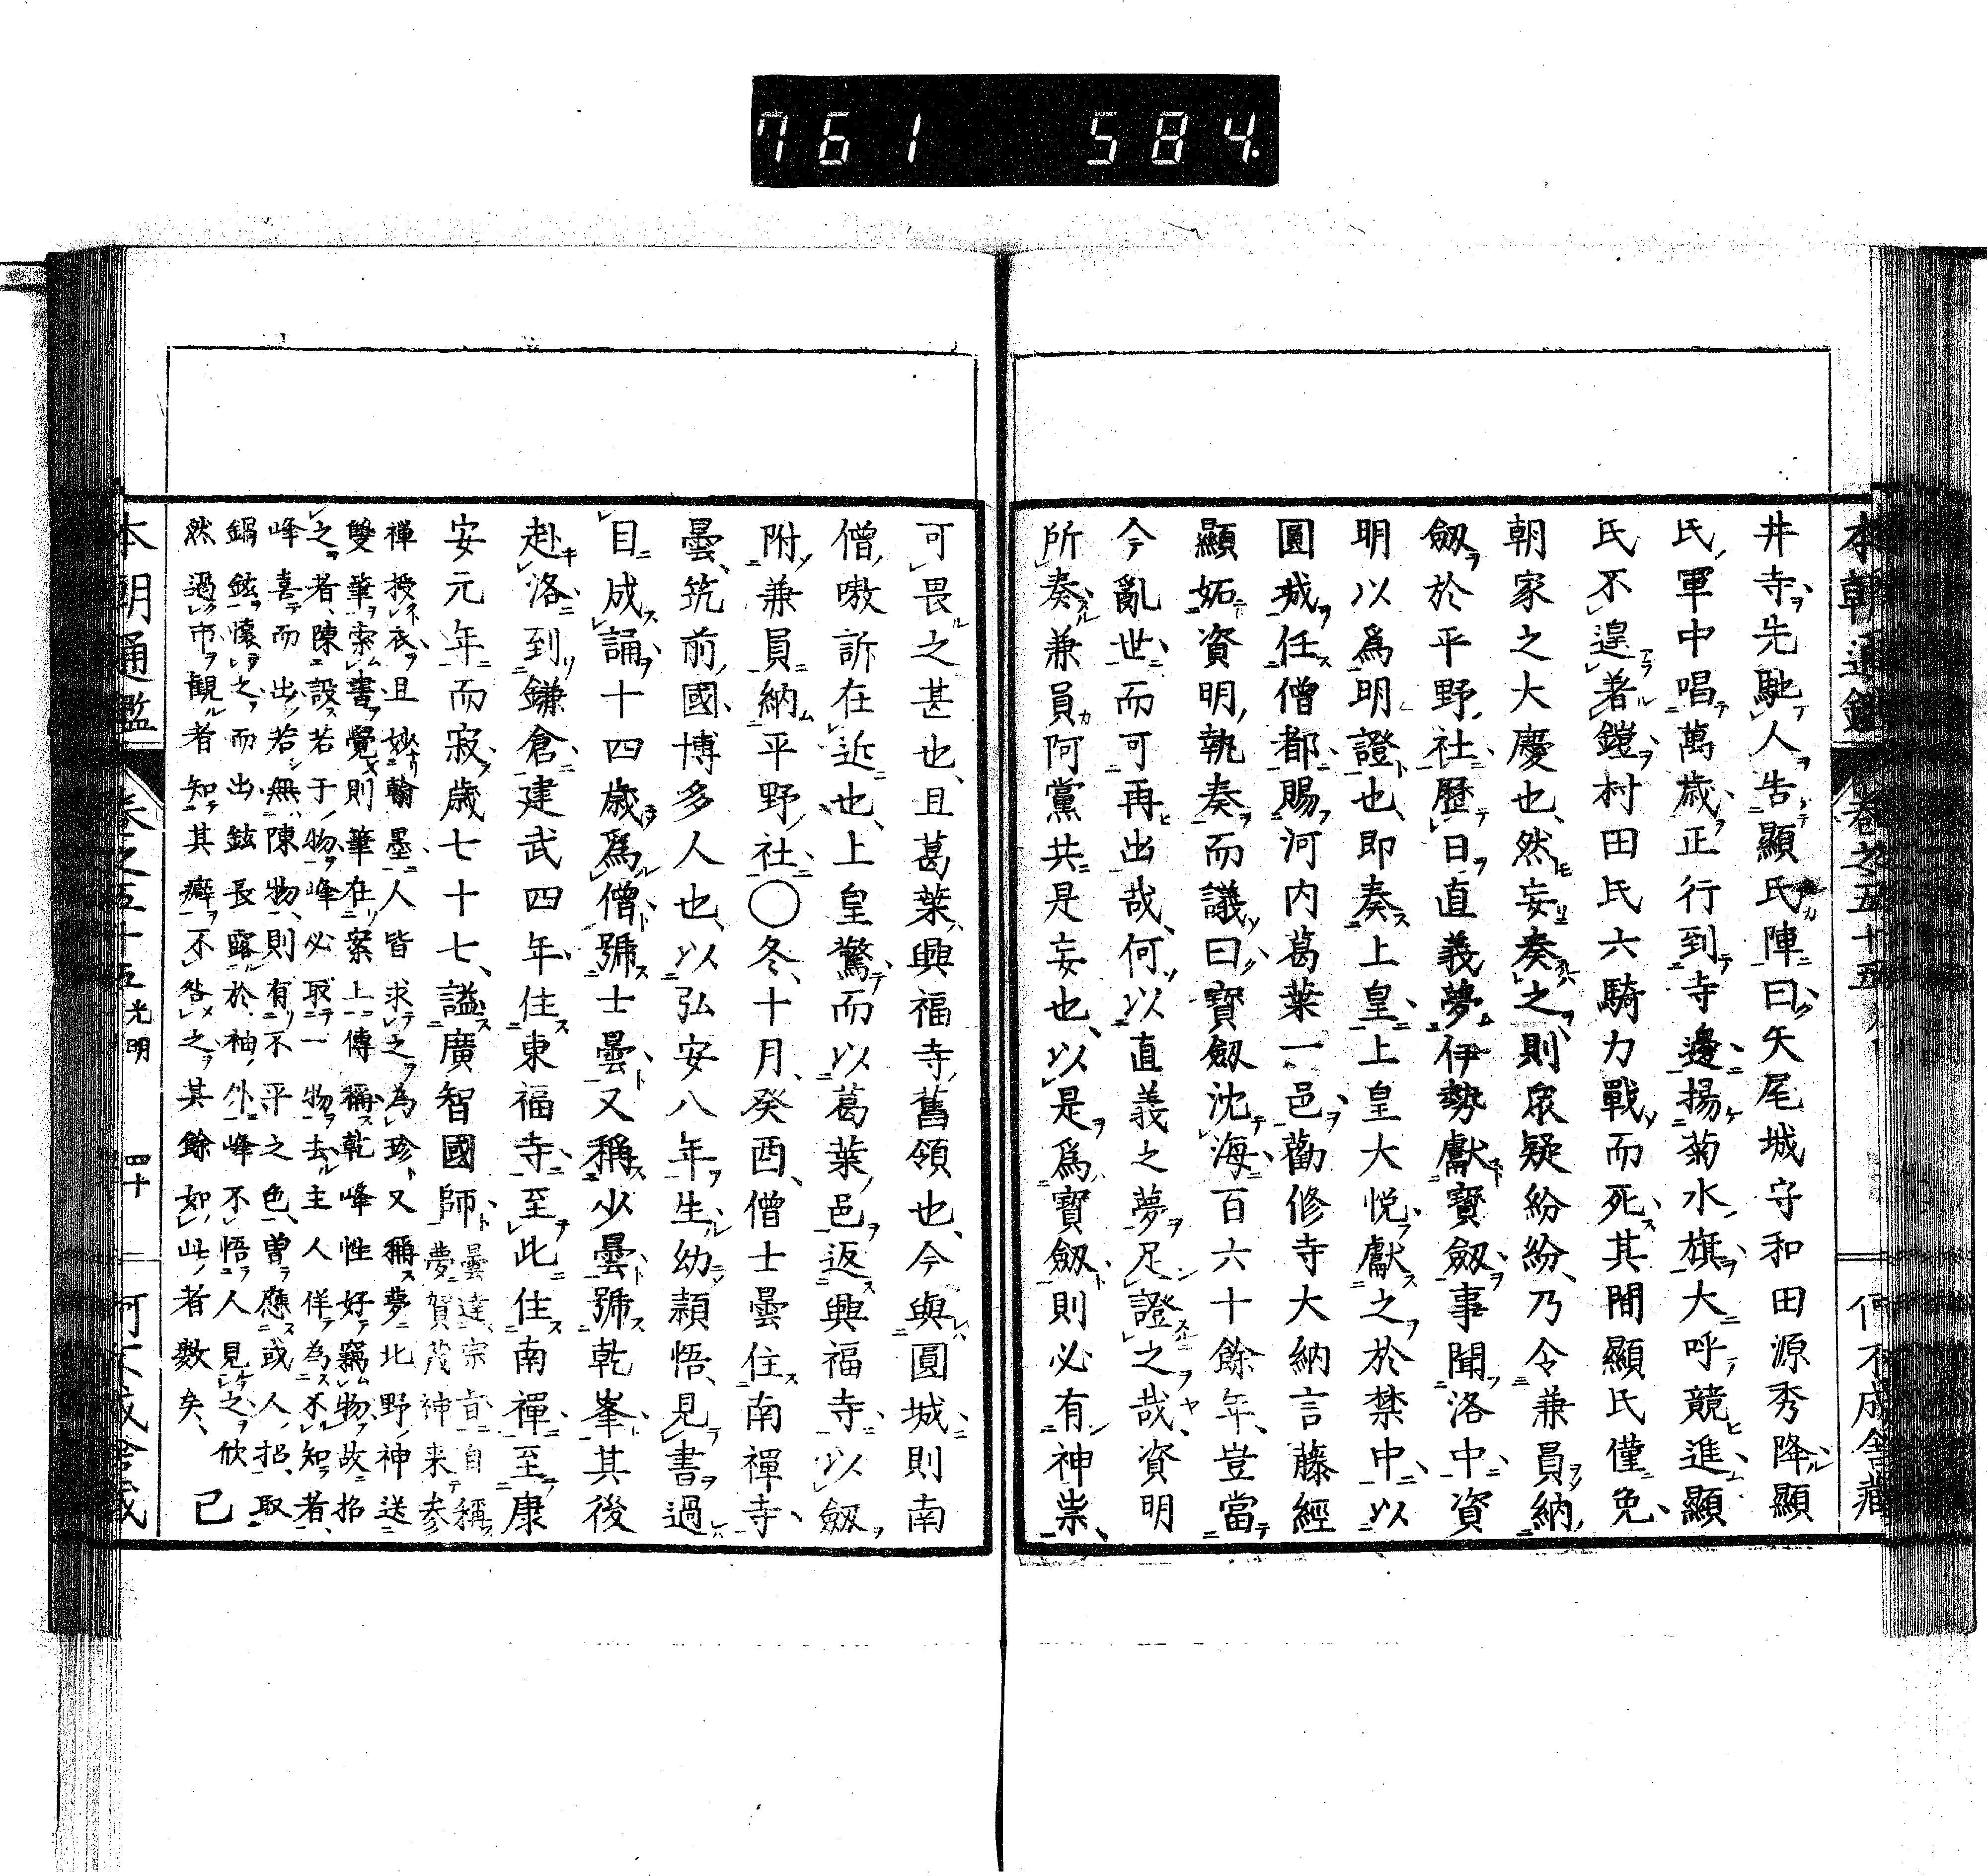 761 584.
本朝通鑑 卷之五十五 何不成舍藏
井寺先馳人告顯氏陣曰矢尾城守和田源秀降顯
氏軍中唱萬歳正行到寺邊揚菊水旗大呼競進顯
氏不遑著鎧村田氏六騎力戰而死其間顯氏僅免
朝家之大慶也然妄奏之則衆疑紛紛乃令兼員納
劔於平野社歷日直義夢伊勢獻寶劔事聞洛中資
明以爲明證也即奏上皇上皇大悦獻之於禁中以
圓城任僧都賜河内葛葉一邑勸修寺大納言藤經
顯妬資明執奏而議曰寶劔沈海百六十餘年豈當
今亂世而可再出哉何以直義之夢足證之哉資明
所奏兼員阿黨共是妄也以是爲寶劔則必有神祟
可畏之甚也且葛葉興福寺舊領也今與圓城則南
僧嗷訴在近也上皇驚而以葛葉邑返興福寺以劔
附兼員納平野社〇冬十月癸酉僧士曇住南禪寺
曇筑前國博多人也以弘安八年生幼穎悟見書過
目成誦十四歳爲僧號士曇又稱少曇號乾峯其後
赴洛到鎌倉建武四年住東福寺至此住南禪至康
安元年而寂歳七十七謚廣智國師曇達宗旨自稱
夢賀茂神来參
禅授衣且妙翰墨人皆求之為珍又稱夢北野神送
雙筆索書覺則筆在案上傳稱乾峰性好竊物故招
之者陳設若于物峰必取一物去主人佯為不知者
峰喜而出若無陳物則有不平之色曽應或人招取
鍋鉉懷之而出鉉長露於袖外峰不悟人見之欣
然過市觀者知其癖不咎之其餘如此者數矣 己
本朝通鑑 卷之五十五 光明 四十 何不成舍藏